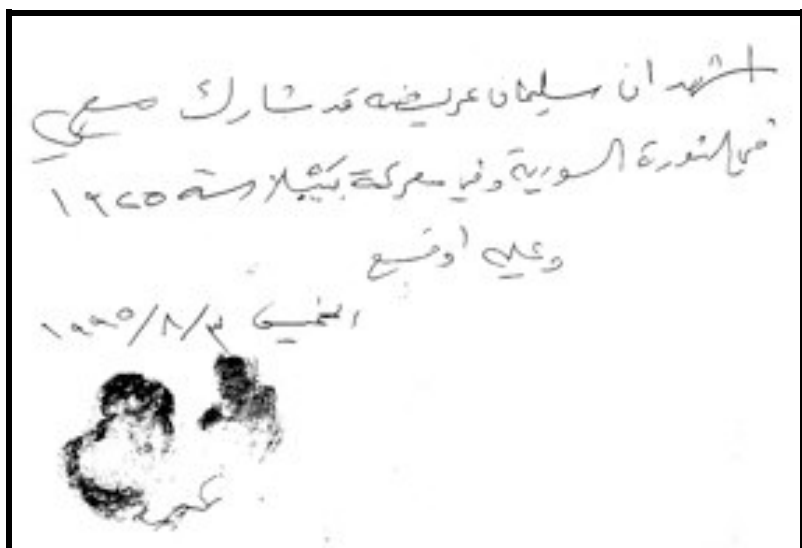 اشهد ان سليمان عريضه قد شارك معي
في الثورة السورية وفي معركة سنة ١٩٢٥
وعليه اوقع
الخميس ١٩٩٥/٨/٣